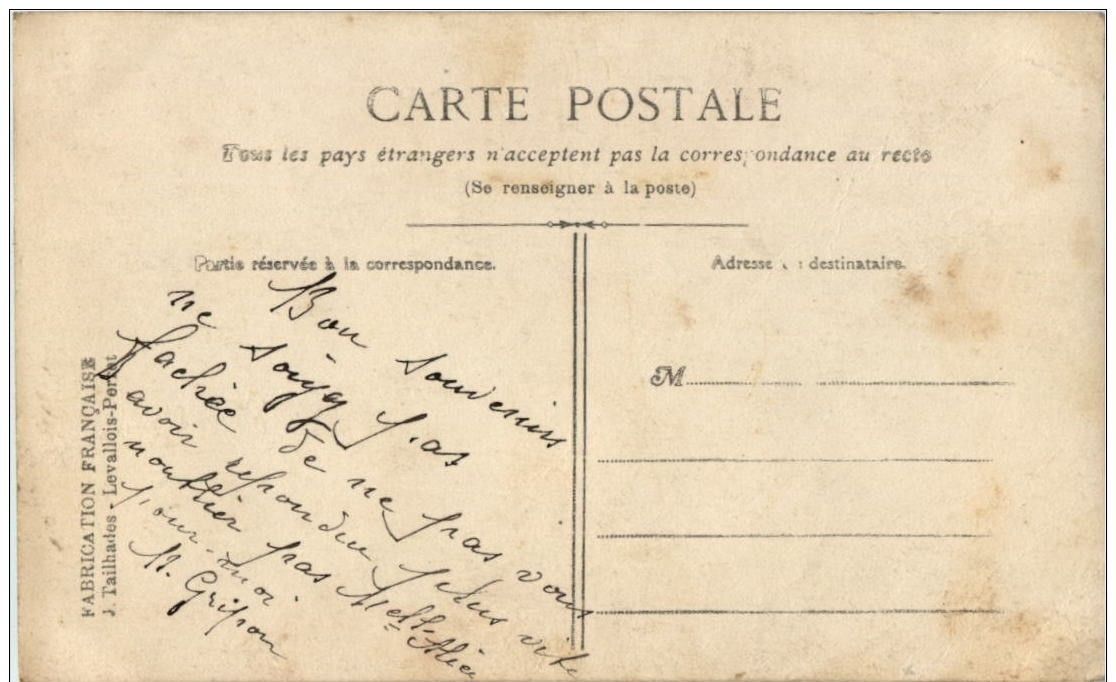 CARTE POSTALE
Tous les pays étrangers n'acceptent pas la correspondance au recto
(Se renseigner à la poste)
Partie réservée à la correspondance.
Adresse destinataire.
M
FABRICATION FRANÇAISE
J. Tailhades - Levallois-Perret
Bon souvenir
ne soyez pas
fachée de ne pas vous
avoir repondu plus vite
n'oublier pas Melle Alice
pour-moi